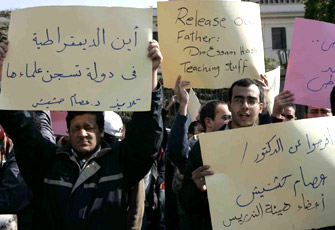 أين الديمقراطية
فى دولة تسجن علماءها
د. عصام حشيش
Release Our
Father:
Dr Essam Hash
Teaching Stuff
أفرجوا عن الدكتور /
عصام حشيش
أعضاء هيئة التدريس